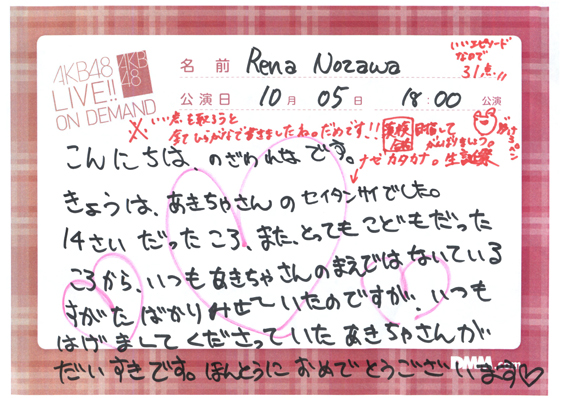 AKB48
LIVE!!
ON DEMAND
AKB
48
名 前 Rena Nozawa
いいエピソード
なので
31点!!
公演日 10月 05日 18:00 公演
※いい点も取ろうと
全てひらがなで書きましたね。だめです!!
英検 目指して
がんばりましょう。
こんにちは、のざわれなです。
なぜカタカナ。生誕祭
きょうは、あきちゃさんのセイタンサイでした。
14さいだったころ、また、とってもこどもだった
ころから、いつもあきちゃさんのまえではないている
すがたばかりみせていたのですが、いつも
はげましてくださっていたあきちゃさんが
だいすきです。ほんとうにおめでとうございます♡
DMM.com